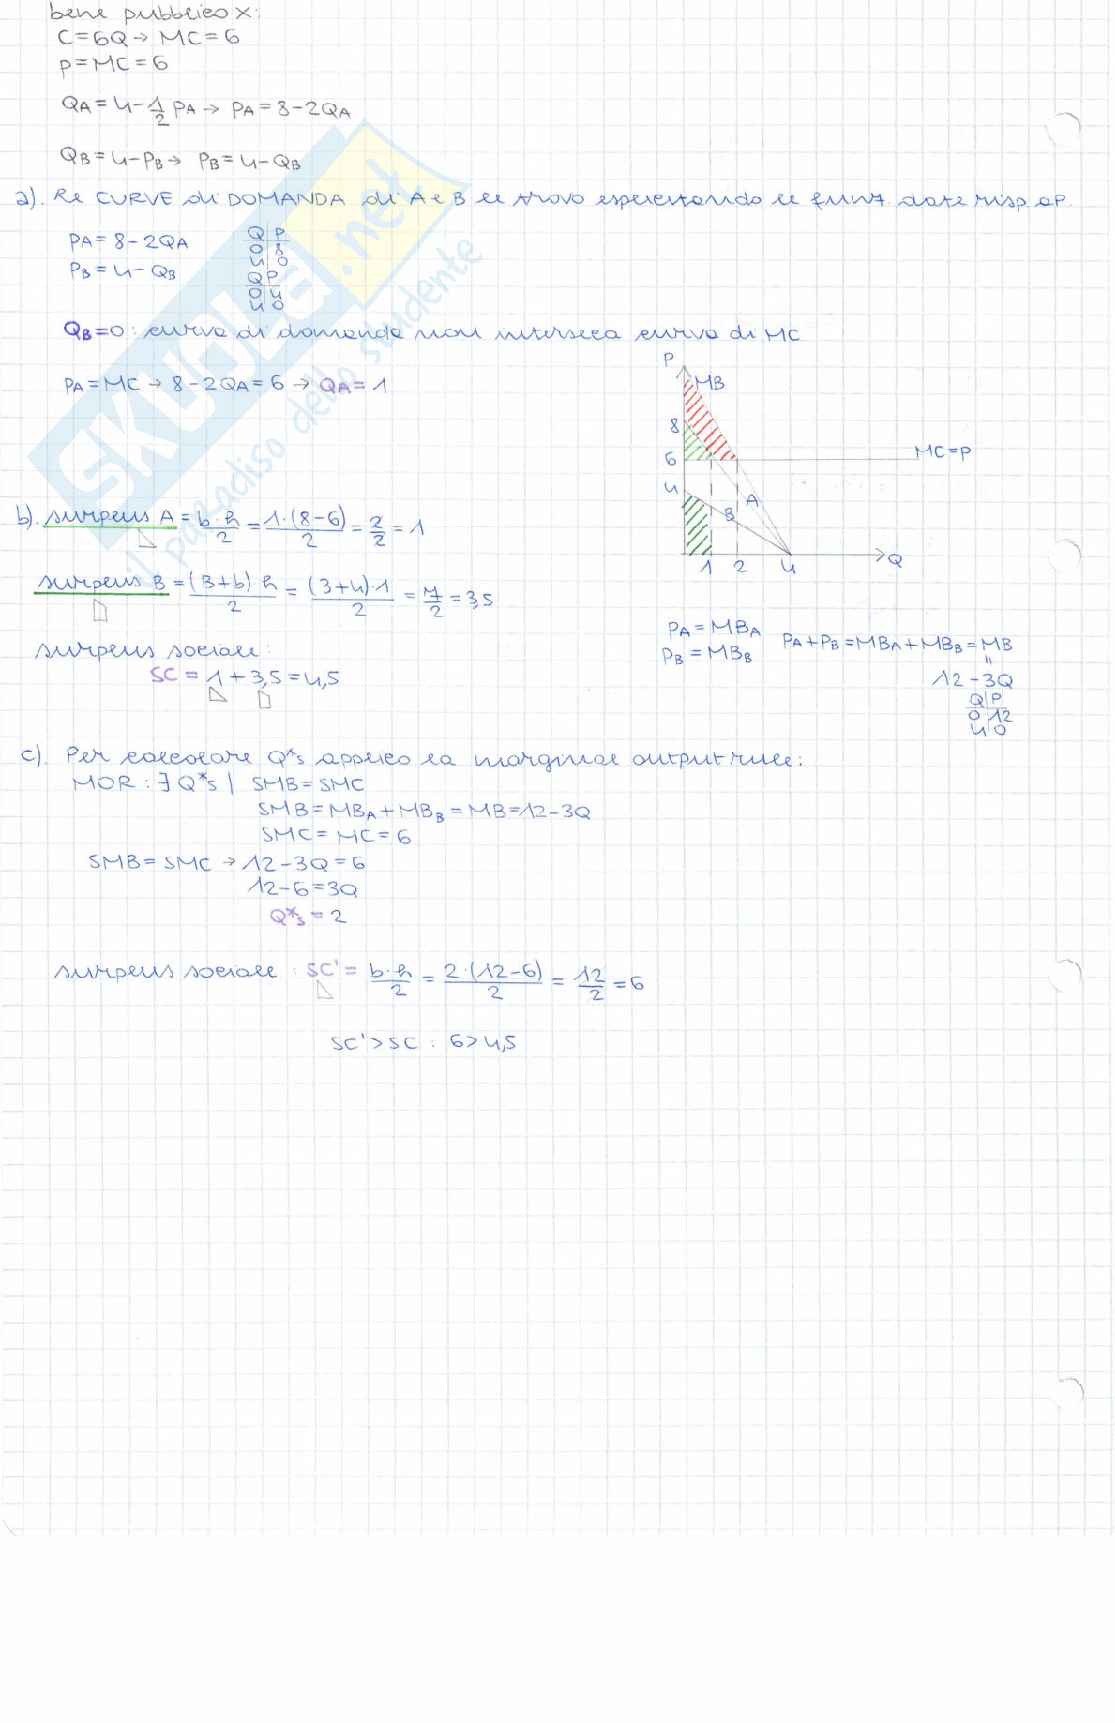 bene pubblico x:
C=6Q → MC=6
P=MC=6
QA=4-1/2 PA → PA=8-2QA
QB=4-PB → PB=4-QB
a). Le CURVE di DOMANDA di A e B le trovo esplicitando le funz. date risp. a P.
PA=8-2QA
Q|P
0 8
4 0
PB=4-QB
Q P
0 4
4 0
QB=0: curva di domanda non interseca curva di MC
PA=MC → 8-2QA=6 → QA=1
P
MB
8
6
MC=P
4
A
B
1 2 4 Q
b). surplus A = b·h/2 = 1·(8-6)/2 = 2/2 = 1
surplus B = (B+b)·h/2 = (3+4)·1/2 = 7/2 = 3,5
surplus sociale:
SC = 1 + 3,5 = 4,5
PA=MBA
PB=MBB
PA+PB=MBA+MBB=MB
"
12-3Q
Q|P
0 12
4 0
c). Per calcolare Q*s applico la marginal output rule:
MOR: ∃ Q*s | SMB=SMC
SMB=MBA+MBB=MB=12-3Q
SMC=MC=6
SMB=SMC → 12-3Q=6
12-6=3Q
Q*s=2
surplus sociale: SC' = b·h/2 = 2·(12-6)/2 = 12/2 = 6
SC'>SC: 6>4,5
SKUOLA.net
il paradiso dello studente